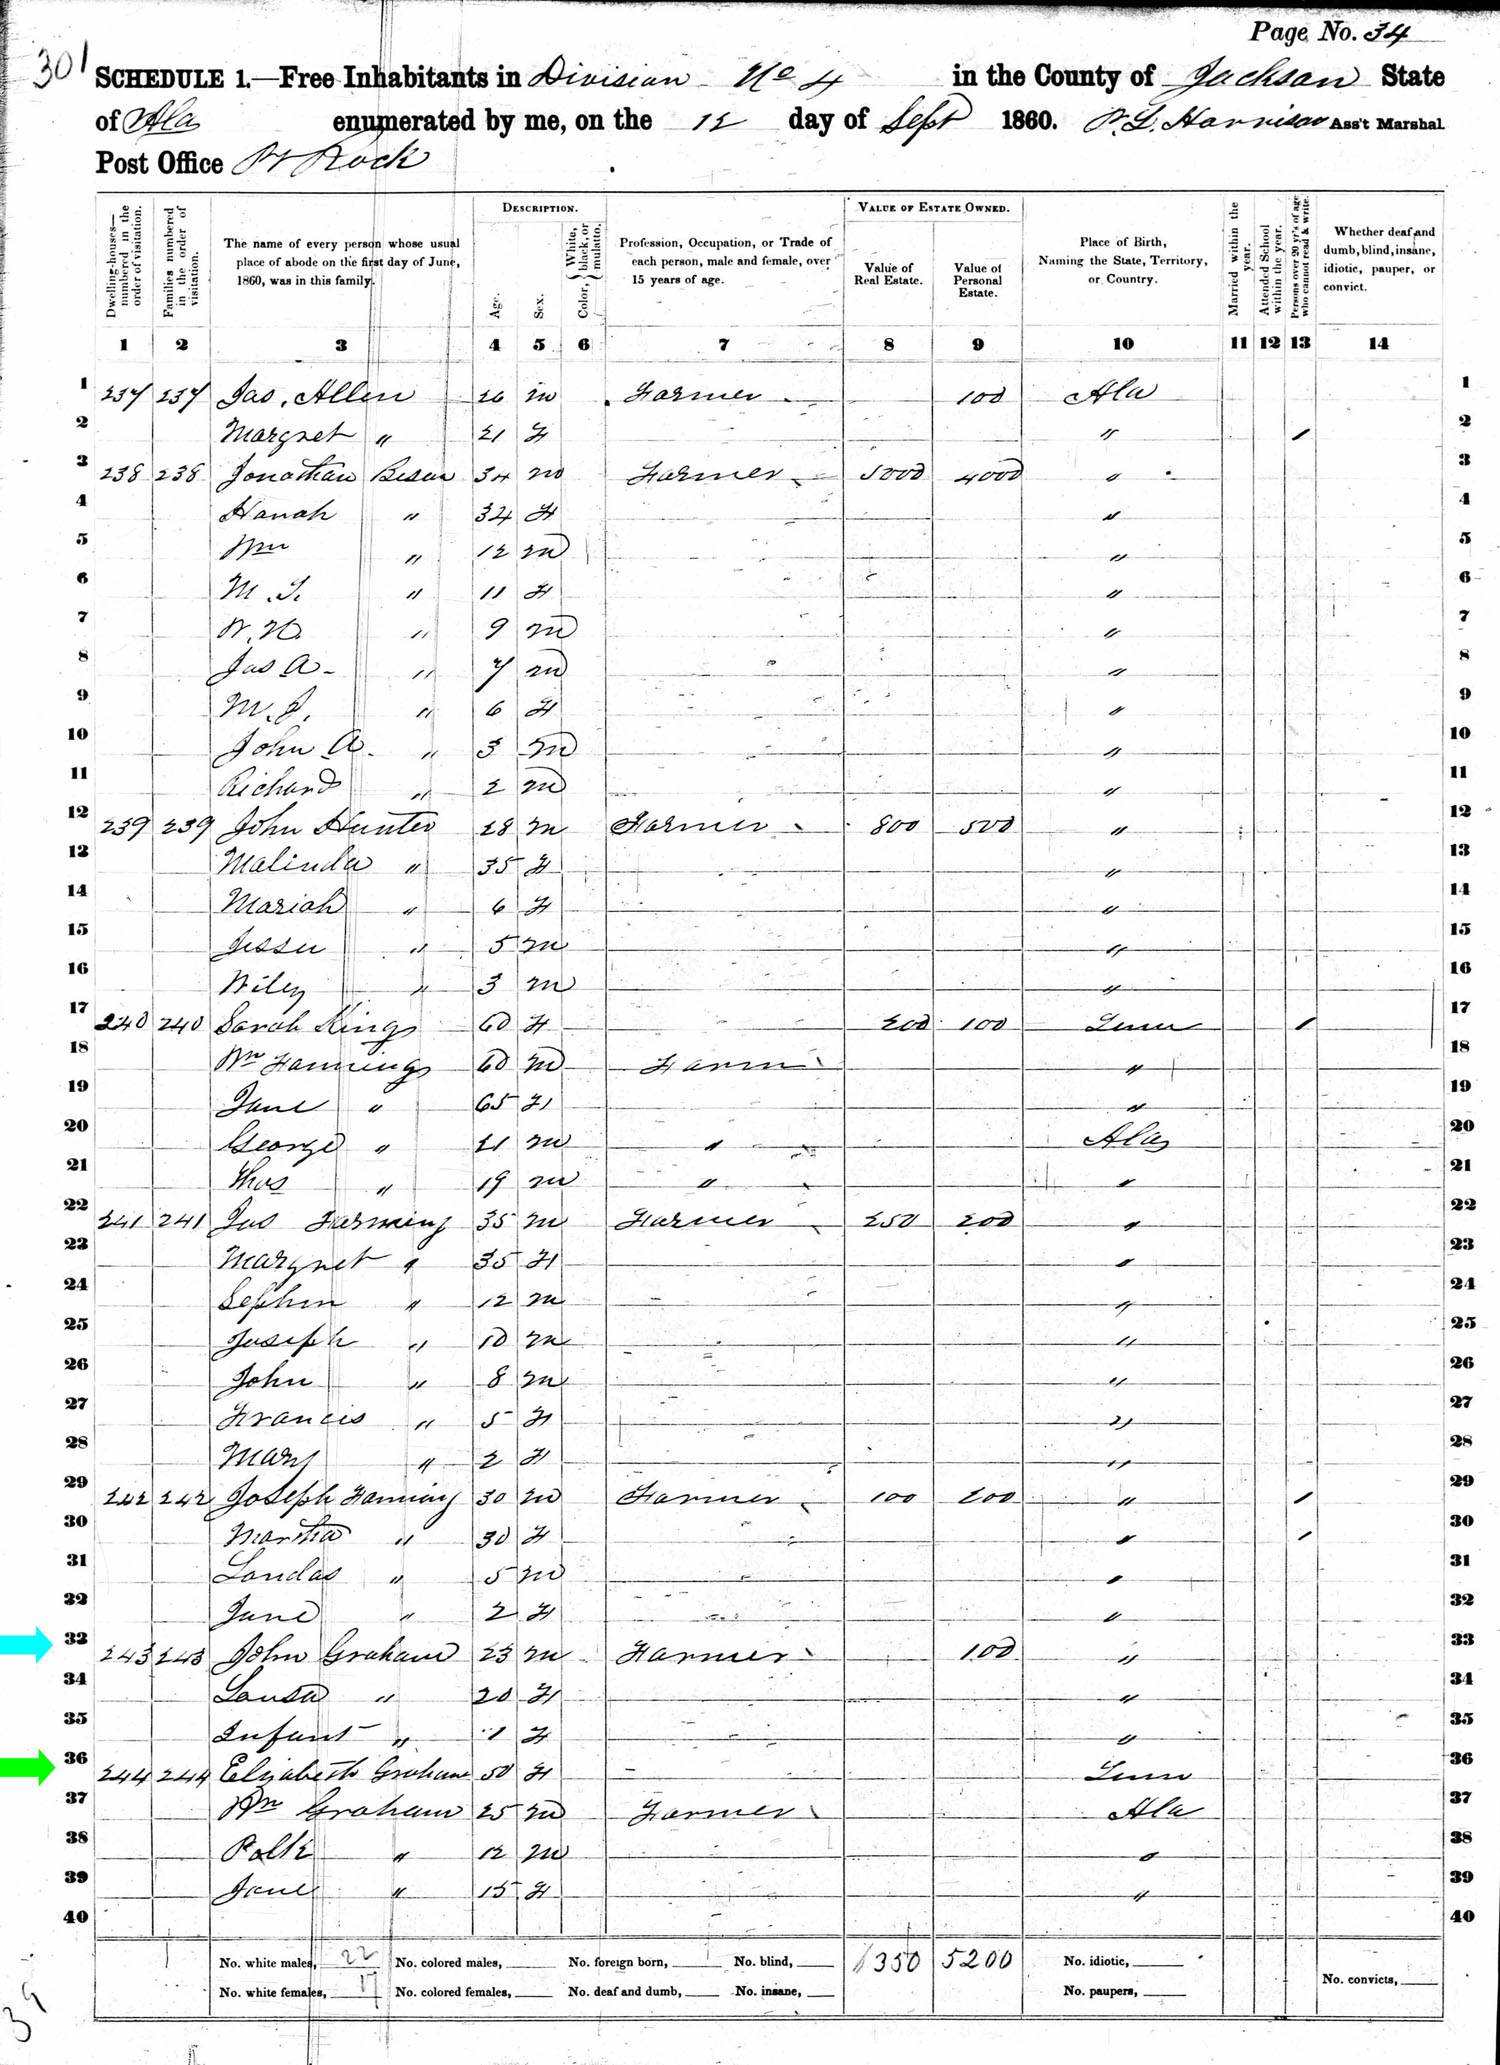 Page No. 34
301
SCHEDULE 1.—Free Inhabitants in Division No 4 in the County of Jackson State
of Ala enumerated by me, on the 12 day of Sept 1860. P. L. Harrison Ass't Marshal
Post Office Pt Rock
DESCRIPTION. VALUE OF ESTATE OWNED.
Dwelling-houses—numbered in the order of visitation.
Families numbered in the order of visitation.
The name of every person whose usual place of abode on the first day of June, 1860, was in this family.
Age.
Sex.
Color, { White, black, or mulatto.
Profession, Occupation, or Trade of each person, male and female, over 15 years of age.
Value of Real Estate.
Value of Personal Estate.
Place of Birth, Naming the State, Territory, or Country.
Married within the year.
Attended School within the year.
Persons over 20 y'rs of age who cannot read & write.
Whether deaf and dumb, blind, insane, idiotic, pauper, or convict.
1 2 3 4 5 6 7 8 9 10 11 12 13 14
1 237 237 Jas. Allen 26 m Farmer 100 Ala 1
2 Margret " 21 F " / 2
3 238 238 Jonathan 34 m Farmer 5000 4000 " 3
4 Hanah " 34 F " 4
5 Wm " 12 m " 5
6 M. T. " 11 F " 6
7 W. H. " 9 m " 7
8 Jas A- " 7 m " 8
9 M. J. " 6 F " 9
10 John A. " 3 m " 10
11 Richard " 2 m " 11
12 239 239 John Hunter 28 m Farmer 800 500 " 12
13 Malinda " 35 F " 13
14 Mariah " 6 F " 14
15 Jesse " 5 m " 15
16 Wiley " 3 m " 16
17 240 240 Sarah Kings 60 F 200 100 Tenn / 17
18 Wm Fannings 60 m Farm " 18
19 Jane " 65 F " 19
20 George " 21 m " Ala 20
21 Thos " 19 m " " 21
22 241 241 Jas Farming 35 m Farmer 250 200 " 22
23 Margret " 35 F " 23
24 Sephen " 12 m " 24
25 Joseph " 10 m " 25
26 John " 8 m " 26
27 Francis " 5 F " 27
28 Mary " 2 F " 28
29 242 242 Joseph Fanning 30 m Farmer 100 200 " / 29
30 Martha " 30 F " / 30
31 Landas " 5 m " 31
32 Jane " 2 F " 32
33 243 243 John Graham 23 m Farmer 100 " 33
34 Lousa " 20 F " 34
35 Infant " 1 F " 35
36 244 244 Elizabeth Graham 50 F Tenn 36
37 Wm Graham 25 m Farmer Ala 37
38 Polk " 12 m " 38
39 Jane " 15 F " 39
40 40
No. white males, 22 No. colored males, No. foreign born, No. blind, 6350 5200 No. idiotic,
No. white females, 17 No. colored females, No. deaf and dumb, No. insane, No. paupers, No. convicts,
39